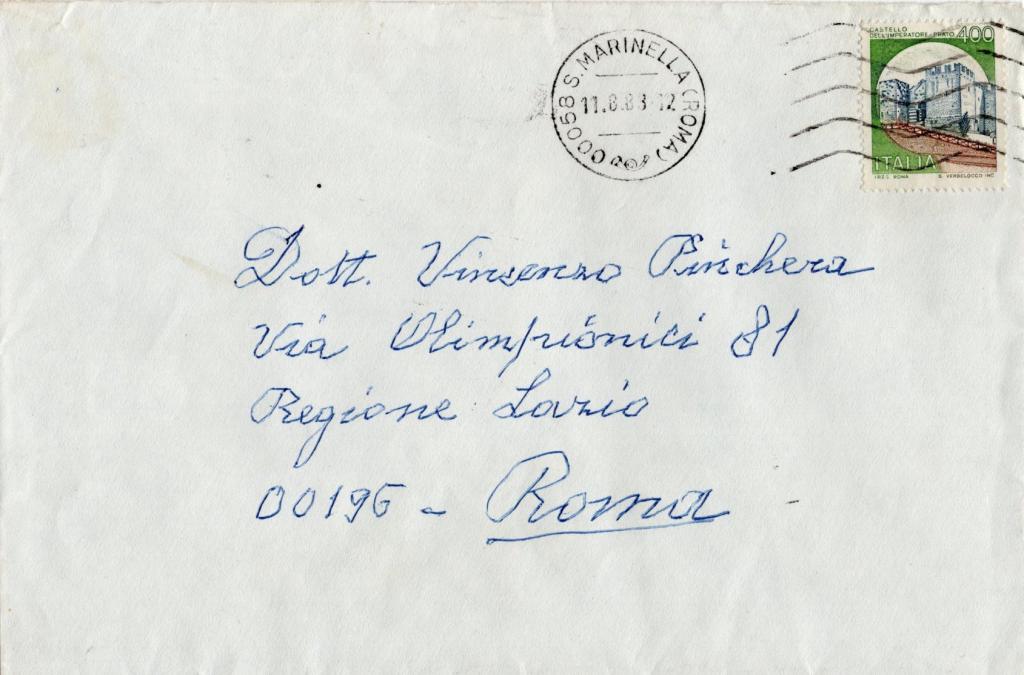 CASTELLO
DELL'IMPERATORE - PRATO 400
ITALIA
I.P.Z.S. ROMA
00058 S. MARINELLA (ROMA)
11.8.83-12
Dott. Vinsenzo Pinchera
Via Olimpiónici 81
Regione Lazio
00196 - Roma